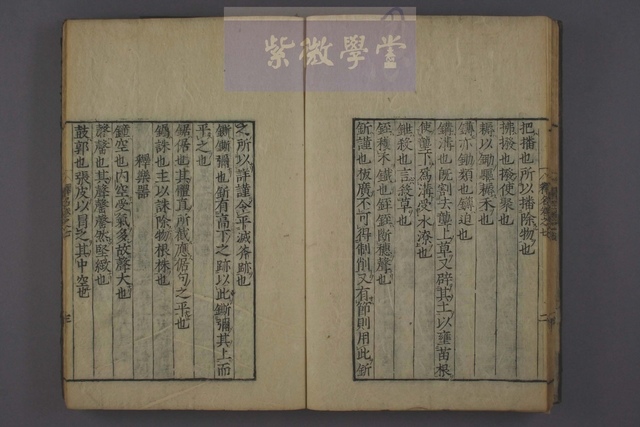 紫微學堂
把播也所以播除物也
拂撥也撥使聚也
耨以鋤耨禾也
鎛亦鋤類也鎛迫也
溝也既割去壟上草又辟其土以壅苗根
使壟下為溝受水潦也
殺也言殺草也
銍穫禾鐵也銍銍斷穗聲也
釿謹也板廣不可得制削又有節則用此釿
之所以詳謹令平滅斧跡也
鐁鐁彌也釿有高下之跡以此鐁彌其上而
平之也
鋸倨也其體直所截應倨句之平也
誅也主以誅除物根株也
釋樂器
鐘空也內空受氣多故聲大也
磬罄也其聲罄罄然堅緻也
鼓郭也張皮以冒之其中空也